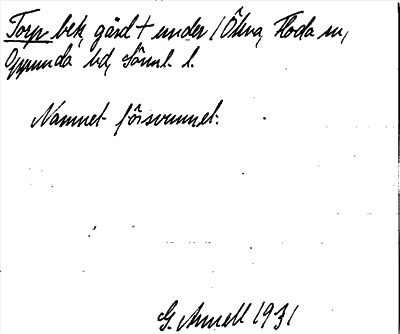 Torp bek, gärd + under 1 Ökna, Floda sn,
Oppunda hd, Söml. l.
Namnet försvunnet.
G. Arnell 1931